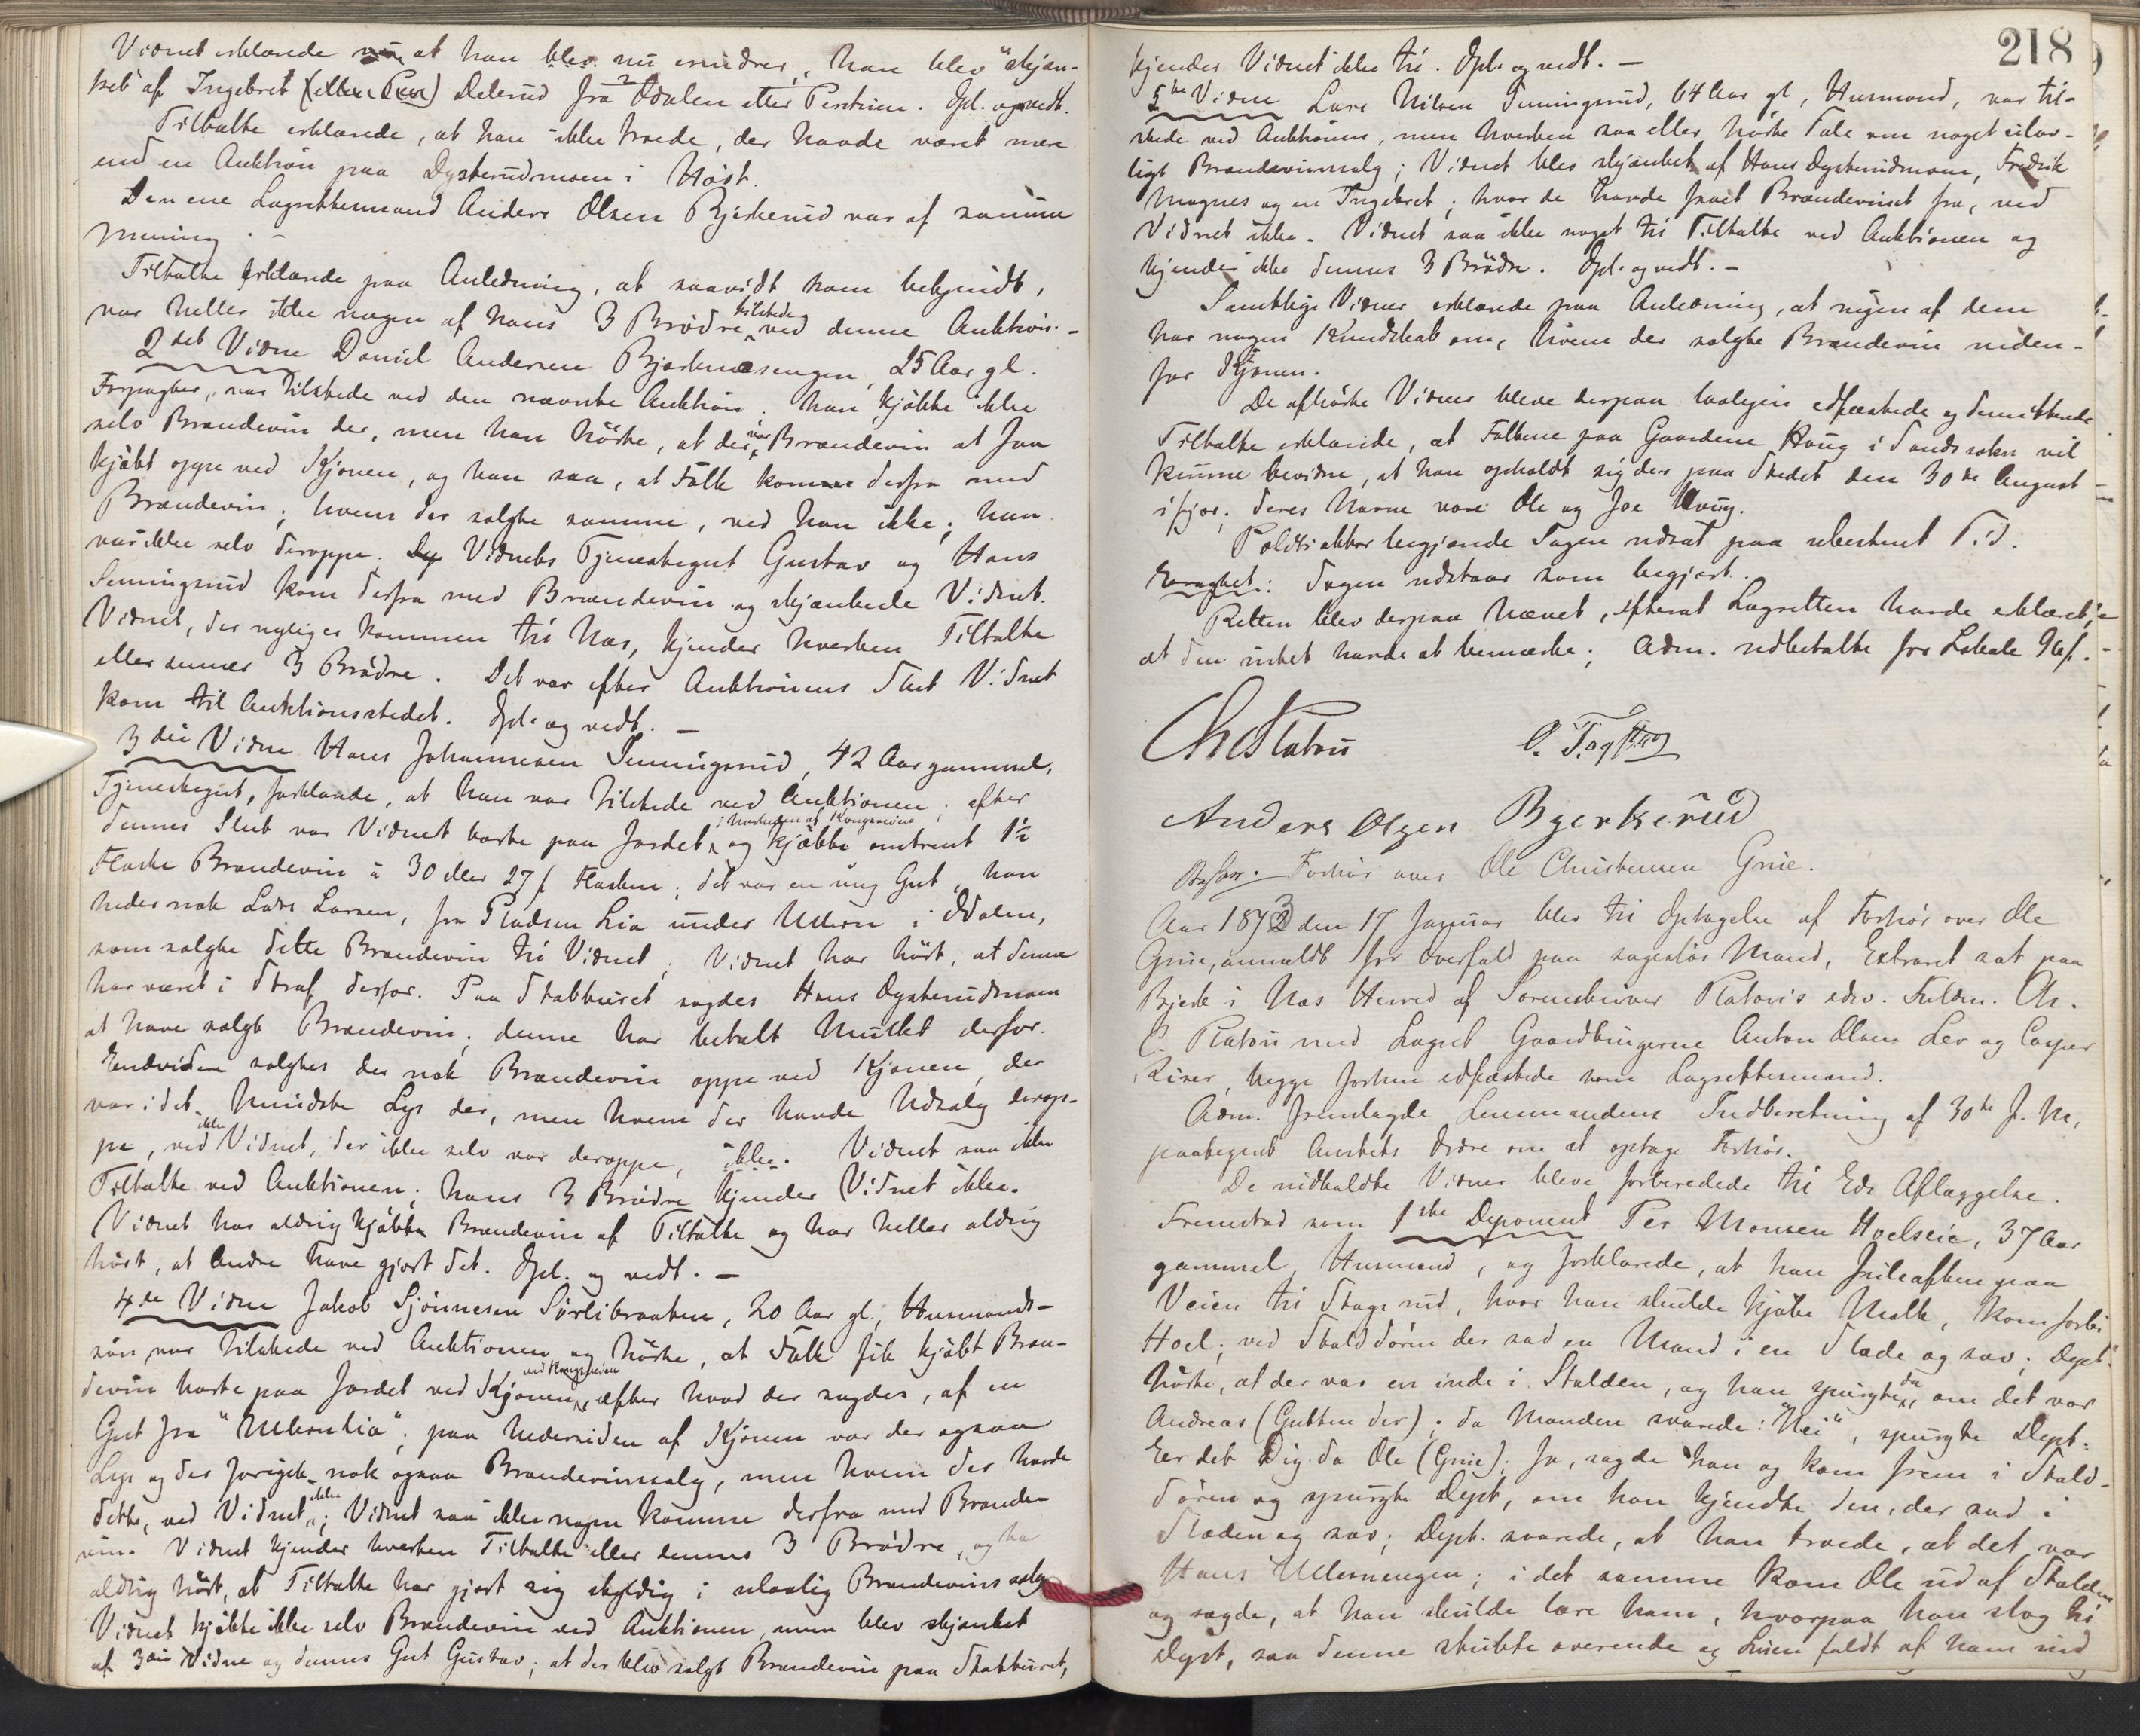 Vidnet erklærede at han blev nu erindrer, han blev "skjæn-
ket" af Ingebret (eller Peer) Delerud fra Odalen efter Peershuen. Opl. og vedt.
Tiltalte erklærede, at han ikke troede, der havde været mere
end en Auktion paa Dysterudmoen i Høst.
Den ene Lagrettesmand Anders Olsen Bjerkerud var af samme
Mening. –
Tiltalte erklærede paa Anledning, at saavidt ham bekjendt,
var heller ikke nogen af hans 3 Brødre tilstede ved denne Auktion. –
2det Vidne Daniel Andersen Bjerkenæsengen, 25 Aar gl.
Forpagter, var tilstede ved den nævnte Auktion. Han kjøbte ikke
selv Brændevin der, men han hørte, at der var Brændevin at faa
kjøbt oppe ved Kjonen, og han saa, at Folk kom derfra med
Brændevin; hvem der solgte samme, ved han ikke; han
var ikke selv deroppe. Vidnets Tjenestegut Gustav og Hans
Semingsrud kom derfra med Brændevin og skjænkede Vidnet.
Vidnet, der nyligen kommen til Næs, kjender hverken Tiltalte
eller dennes 3 Brødre. Det var efter Auktionens Slut Vidnet
kom til Auktionsstedet. Opl. og vedt. –
3die Vidne Hans Johannesen Semingsrud, 42 Aar gammel,
Tjenestegut, forklarede, at han var tilstede ved Auktionen; efter
dennes Slut var Vidnet borte paa Jordet i Nærheden af Kongsveien og kjøbte omtrent 1½
Flaske Brændevin à 30 eller 27 ß Flasken; det var en ung Gut, han
heder nok Lars Larsen, fra Pladsen Lia under Ullern i Odalen,
som solgte dette Brændevin til Vidnet; Vidnet har hørt, at denne
har været i Straf derfor. Paa Stabburet sagdes Hans Dysterudmoen
at have solgt Brændevin; denne har betalt Mulkt derfor.
Endvidere solgtes der nok Brændevin oppe ved Kjonen, der
var i det Mindste Lys der, men hvem der havde Udsalg derop-
pe, ved ikke Vidnet, der ikke selv var deroppe, ikke. Vidnet saa ikke
Tiltalte ved Auktionen; hans 3 Brødre kjender Vidnet ikke.
Vidnet har aldrig kjøbt Brændevin af Tiltalte og har heller aldrig
hørt, at Andre have gjort det. Opl. og vedt. –
4de Vidne Jakob Sjønnesen Sørlibraaten, 20 Aar gl., Husmands-
søn, var tilstede ved Auktionen og hørte, at Folk fik kjøbt Bræn-
devin borte paa Jordet ved Kjonen ved Kongsveien, efter hvad der sagdes, af en
Gut fra "Ullernlia"; paa Nedersiden af Kjonen var der ogsaa
Lys og der foregik nok ogsaa Brændevinssalg, men hvem der havde
dette, ved Vidnet ikke; Vidnet saa ikke nogen komme derfra med Brænde-
vin. Vidnet kjender hverken Tiltalte eller dennes 3 Brødre, og har
aldrig hørt, at Tiltalte har gjort sig skyldig i ulovlig Brændevinssalg.
Vidnet kjøbte ikke selv Brændevin ved Auktionen, men blev skjænket
af 3die Vidne og dennes Gut Gustav; at der blev solgt Brændevin paa Stabburet,
218
kjender Vidnet ikke til. Opl. og vedt. –
5te Vidne Lars Nilsen Semingsrud, 64 Aar gl, Husmand, var til-
stede ved Auktionen, men hverken saa eller hørte Tale om noget ulov-
ligt Brændevinssalg; Vidnet blev skjænket af Hans Dysterudmoen, Fredrik
Magnes og en Ingebret; hvor de havde faaet Brændevinet fra, ved
Vidnet ikke. Vidnet saa ikke noget til Tiltalte ved Auktionen og
kjender ikke dennes 3 Brødre. Opl. og vedt. –
Samtlige Vidner erklærede paa Anledning, at ingen af dem
har nogen Kundskab om, hvem der solgte Brændevin neden-
for Kjonen.
De afhørte Vidner bleve derpaa lovligen edfæstede og demitterede
Tiltalte erklærede, at Folkene paa Gaardene Haug i Sandssokn vil
kunne bevidne, at han opholdt sig der paa Stedet den 30te August
ifjor; deres Navne vare Ole og Joe Haug.
Politiaktor begjærede Sagen udsat paa ubestemt Tid.
Eragtet: Sagen udstaar som begjært.
Retten blev derpaa hævet, efterat Lagretten havde erklæret,
at den intet havde at bemærke; Adm. udbetalte for Lokale 96 ß.
Chr Platou
Anders Olsen Bjerkerud
Forhør over Ole Christensen Grue.
Aar 1873 den 17 Januar blev til Optagelse af Forhør over Ole
Grue, anmeldt for Overfald paa sagesløs Mand, Extraret sat paa
Bjerke i Næs Herred af Sorenskriver Platou's edsv. Fuldm. Chr.
C. Platou med Lagret Gaardbrugerne Anton Olsen Lev og Casper
Liner, begge forhen edfæstede som Lagrettesmænd.
Adm. fremlagde Lensmandens Indberetning af 30te f. M.,
paategnet Amtets Ordre om at optage Forhør.
De udkaldte Vidner bleve forberedede til Eds Aflæggelse.
Fremstod som 1ste Deponent Per Monsen Hoelseie, 37 Aar
gammel, Husmand, og forklarede, at han Juleaften paa
Veien til Skogsrud, hvor han skulde kjøbe Melk, kom forbi
Hoel; ved Stalddøren der sad en Mand i en Slæde og sov; Dept.
hørte, at der var en inde i Stalden, og han spurgte da, om det var
Andreas (Gutten der); da Manden svarede: "Nei", spurgte Dept:
Er det Dig da Ole (Grue); Ja, sagde han og kom frem i Stald-
døren og spurgte Dept, om han kjendte den, der sad i
Slæden og sov; Dept. svarede, at han troede, at det var
Hans Ullernengen; i det samme kom Ole ud af Stalden
og sagde, at han skulde lære ham, hvorpaa han slog til
Dept, saa denne stubte overende og Luen faldt af ham ind